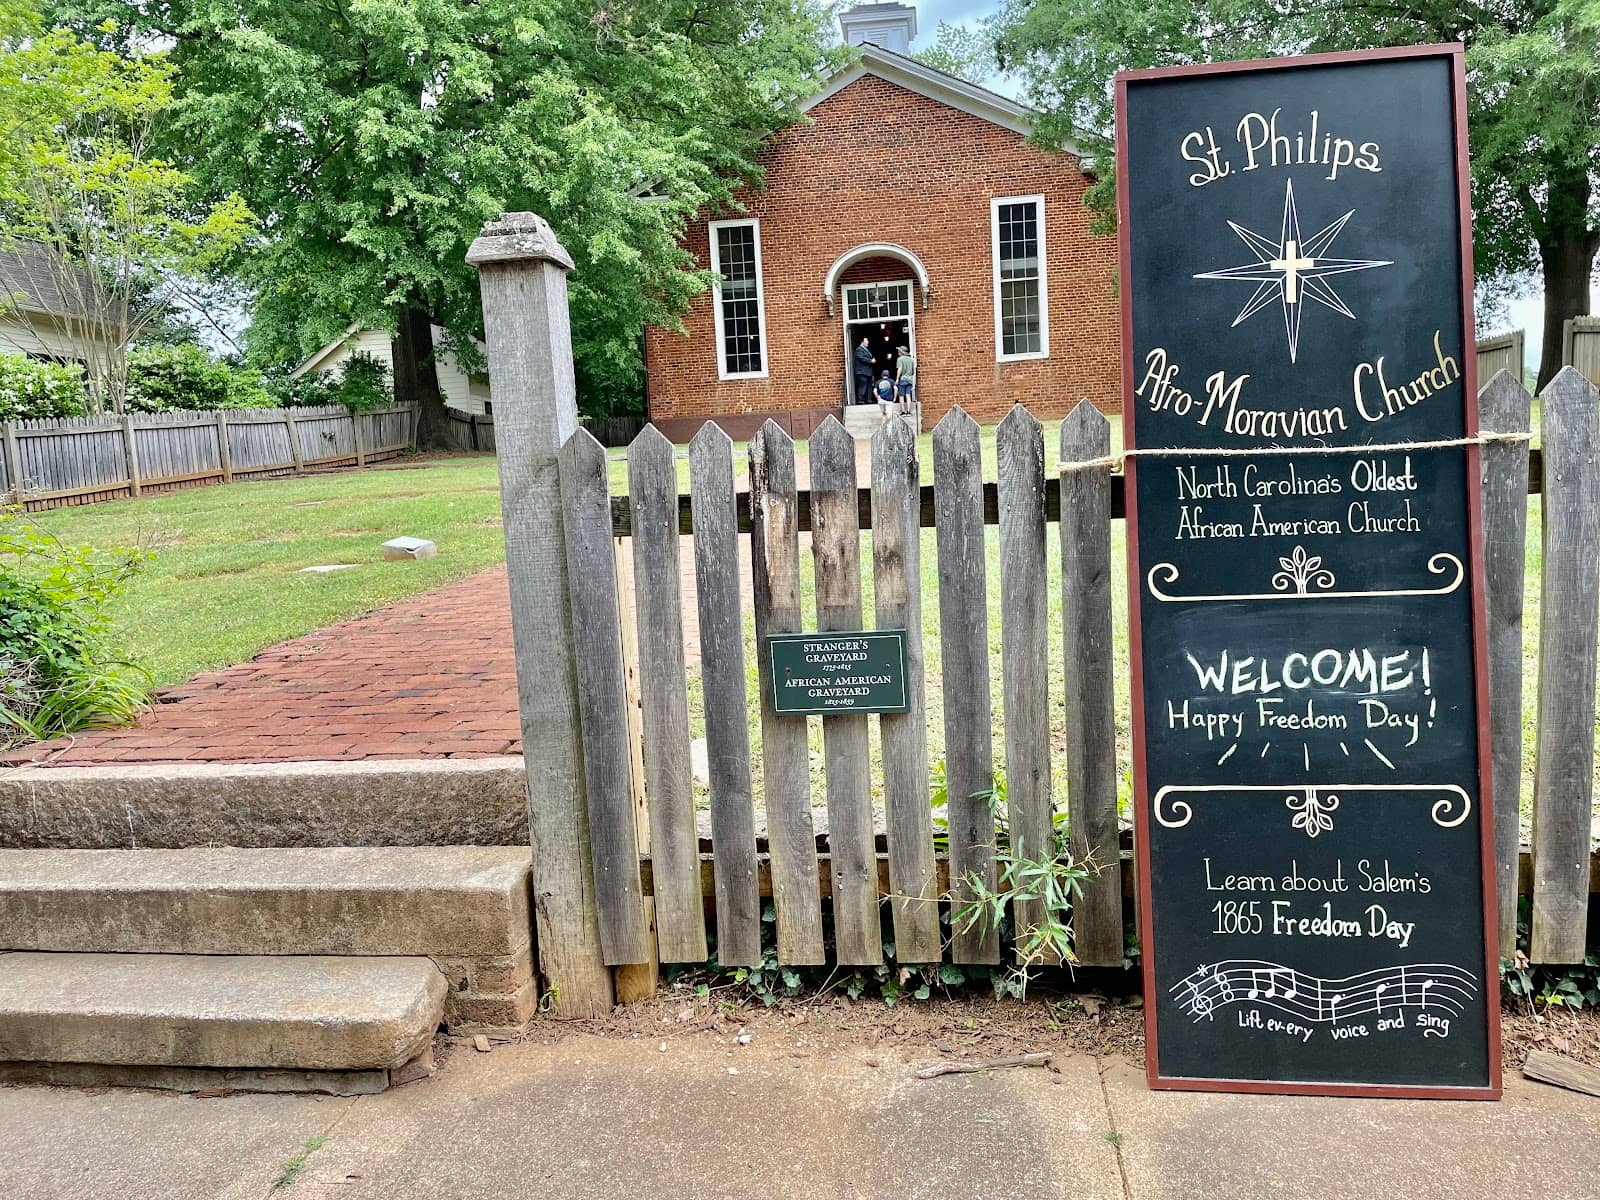 St. Philips
Afro-Moravian Church
North Carolina's Oldest
African American Church
WELCOME!
Happy Freedom Day!
Learn about Salem's
1865 Freedom Day
Lift ev-ery voice and sing
STRANGER'S
GRAVEYARD
1775-1815
AFRICAN AMERICAN
GRAVEYARD
1815-1859